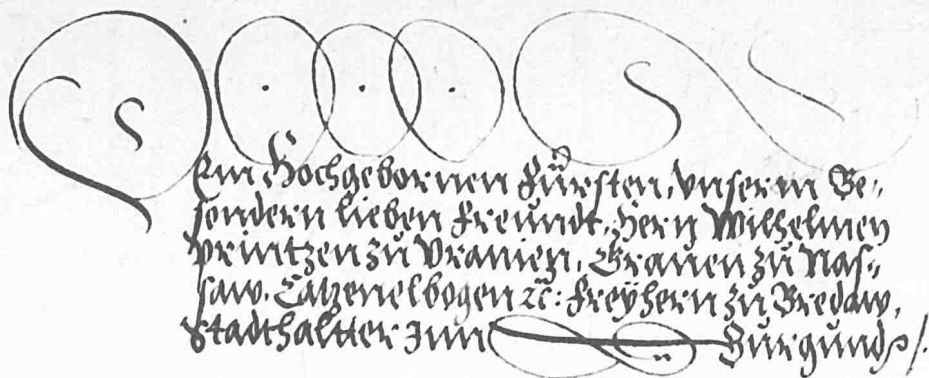 Dem Hochgebornen Fürsten, vnserm Be-
sondern lieben Freundt, Hern Wilhelmen
Printzen zu Vranien, Grauen zu Nas-
saw, Catzenelbogen ꝛc: Freÿhern zu Bredaw,
Stadthaltter Inn Burgund /.